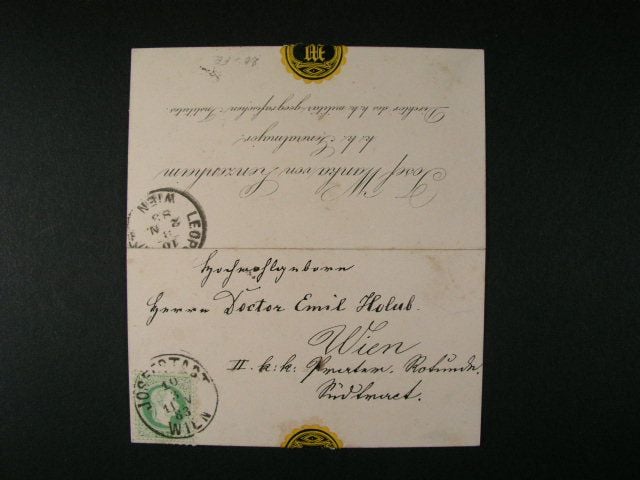 Josef Wanka von Lenzenheim
k. k. Generalmajor
Direktor des k. k. militär-geografischen Institutes.
W
LEOP
WIEN
Hochwohlgeborn
Herrn Doctor Emil Holub.
Wien
II. k: k: Prater, Rotunde.
Südtract.
JOSEFSTADT
10
WIEN